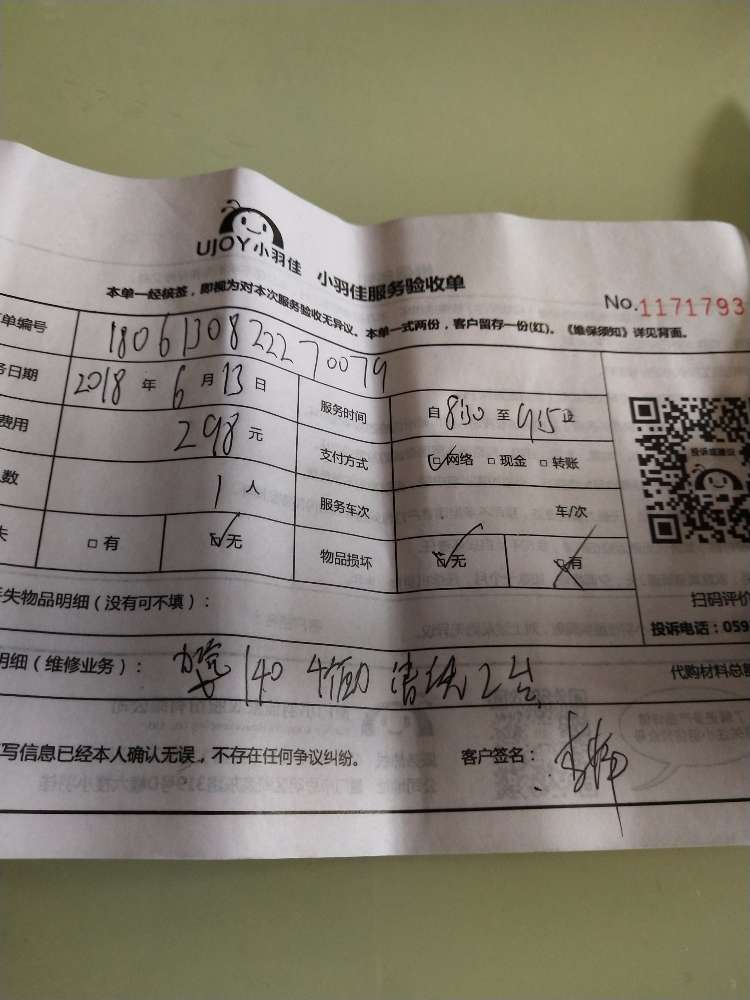 UJOY小羽佳 小羽佳服务验收单
No.1171793
本单一经核签，即视为对本次服务验收无异议。本单一式两份，客户留存一份(红)。《维保须知》详见背面。
单编号 18061308222270079
务日期 2018 年 6 月 13 日 服务时间 自 8:30 至 9:15 止
费用 298 元 支付方式 ☑网络 □现金 □转账
人数 1 人 服务车次 车/次
失 □有 ☑无 物品损坏 ☑无 □有
投诉或建议
扫码评价
丢失物品明细（没有可不填）：
投诉电话：059
明细（维修业务）： 140 清洗2台
代购材料总额
写信息已经本人确认无误，不存在任何争议纠纷。 客户签名：